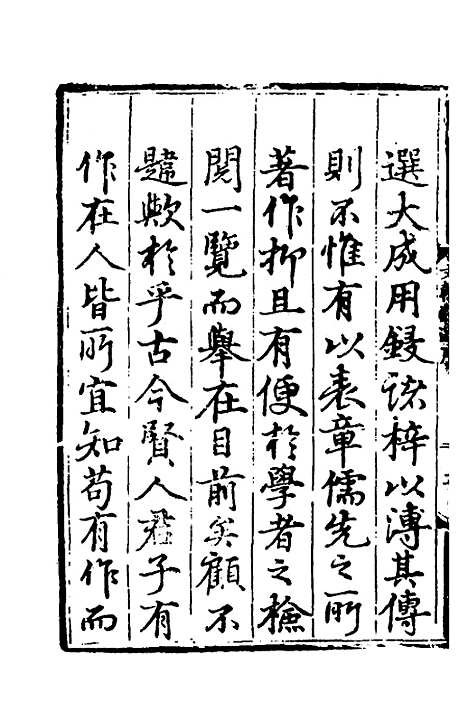 選大成用鋟諸梓以溥其傳
則不惟有以表章儒先之所
著作抑且有便於學者之檢
閱一覽而舉在目前矣顧不
韙歟於乎古今賢人君子有
作在人皆所宜知苟有作而